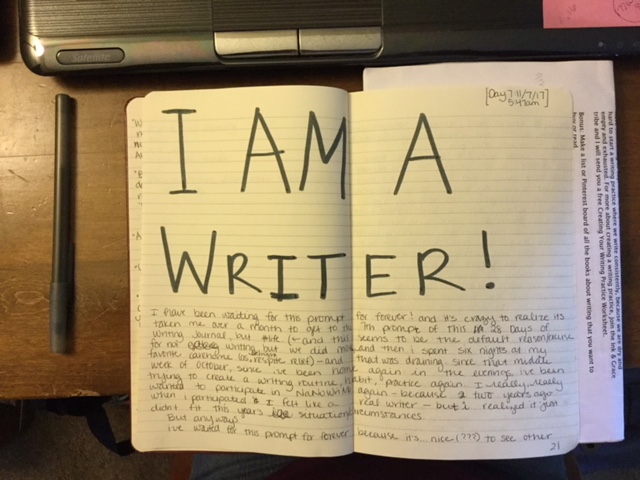 Satellite
[Day 7 11/7/17]
5:47am
I AM A
WRITER!
I have been waiting for this prompt for forever! and it's crazy to realize its
taken me over a month to get to the 7th prompt of this 28 Days of
Writing Journal, but life (- and this seems to be the default reason
for not writing, but we did move and then i spent six nights at my
favorite (carehome respite relief) - and that was draining, since that middle
week of October, since i've been home again in the evenings, i've been
trying to create a writing routine, habit, practice again. I really, really
wanted to participate in NaNoWriMo again - because 2 two years ago
when i participated I felt like a real writer - but i realized it just
didn't fit this years situation circumstances.
But anyway
i've waited for this prompt for forever because it's... nice (???) to see other
21
hard to start a writing practice where we write consistently, because we are dry and
empty and exhausted. For more about creating a writing practice, join the Ink & Grace
tribe and I will send you a free Creating Your Writing Practice Worksheet.
Bonus: Make a list or Pinterest board of all the books about writing that you want to
buy or read.